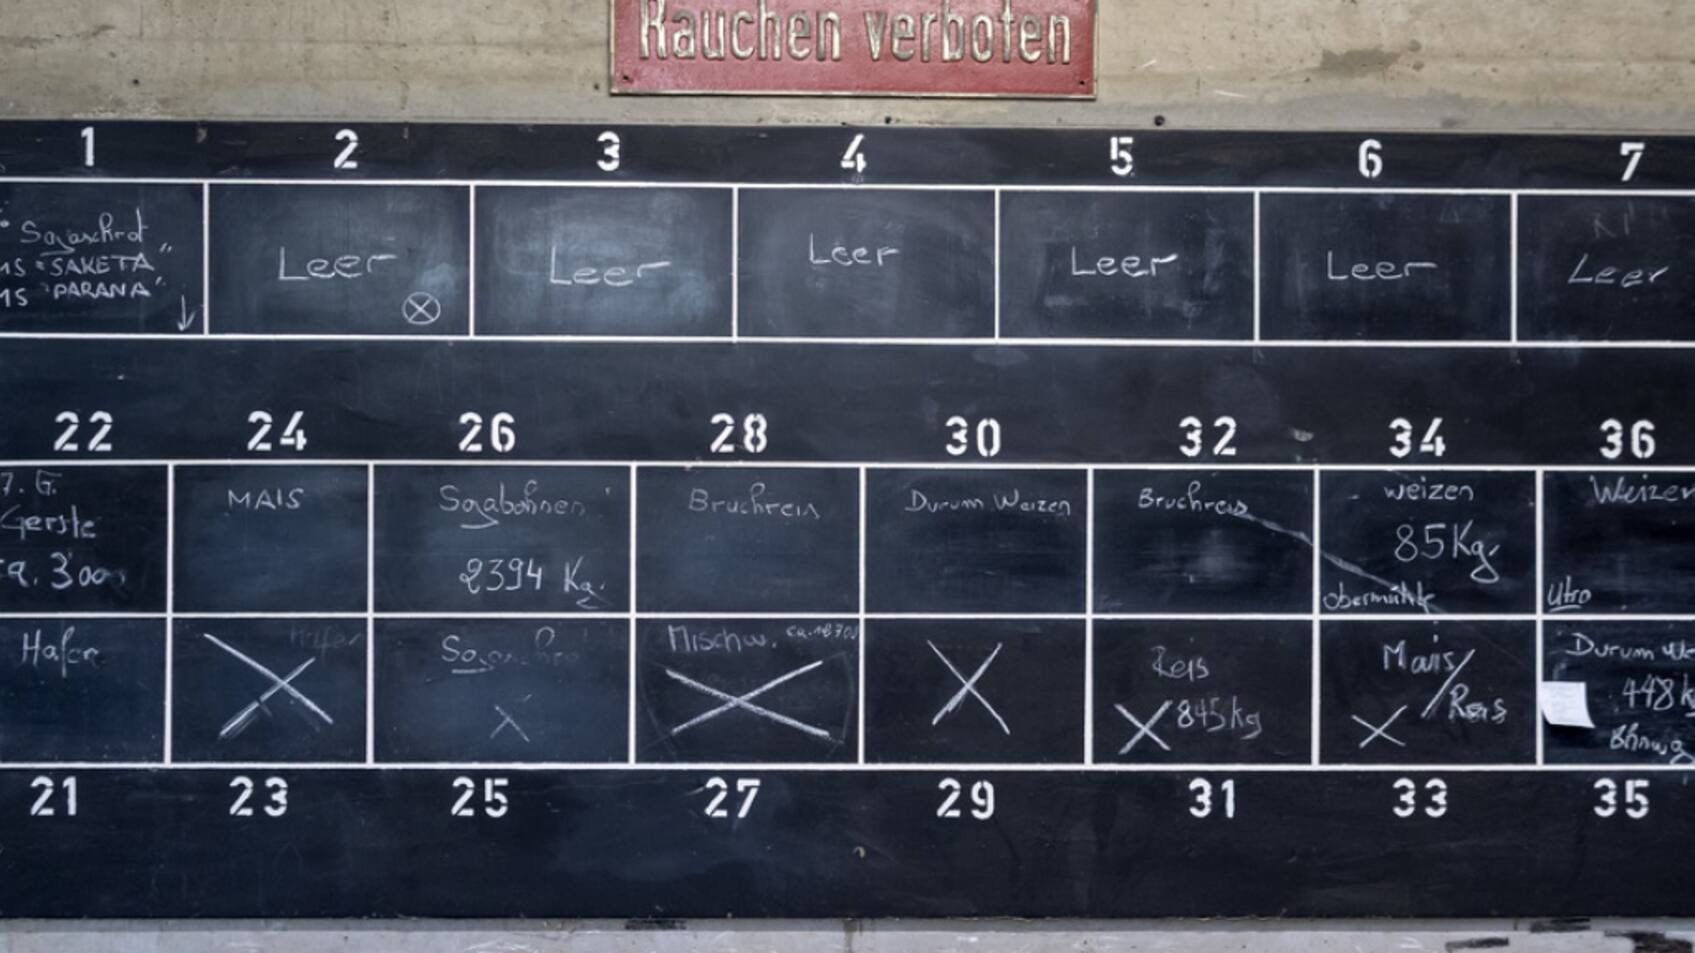 Rauchen verboten
1 2 3 4 5 6 7
Sojaschrot
MS "SAKETA"
MS "PARANA"
Leer
Leer
Leer
Leer
Leer
Leer
22 24 26 28 30 32 34 36
7. G.
Gerste
ca. 3000
MAIS
Sojabohnen
2394 Kg.
Bruchreis
Durum Weizen
Bruchreis
weizen
85Kg.
obermühle
Weizen
Utro
Hafer
Hafer
Sojaschro
Mischw.
Reis
845kg
Mais/
Reis
Durum We
448k
21 23 25 27 29 31 33 35